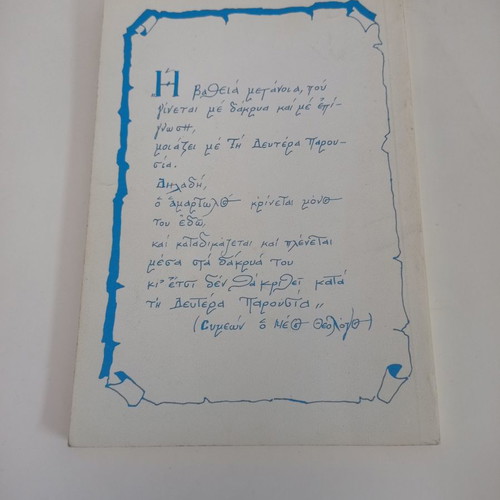 Ἡ βαθειά μετάνοια, πού
γίνεται μέ δάκρυα καί μέ ἐπί-
γνωση,
μοιάζει μέ τή Δευτέρα Παρου-
σία.
Δηλαδή,
ὁ ἁμαρτωλός κρίνεται μόνος
του ἐδῶ,
καί καταδικάζεται καί πλένεται
μέσα στά δάκρυά του
κι' ἔτσι δέν θά κριθεῖ κατά
τή Δευτέρα Παρουσία,,
(Συμεών ὁ Νέος Θεολόγος)